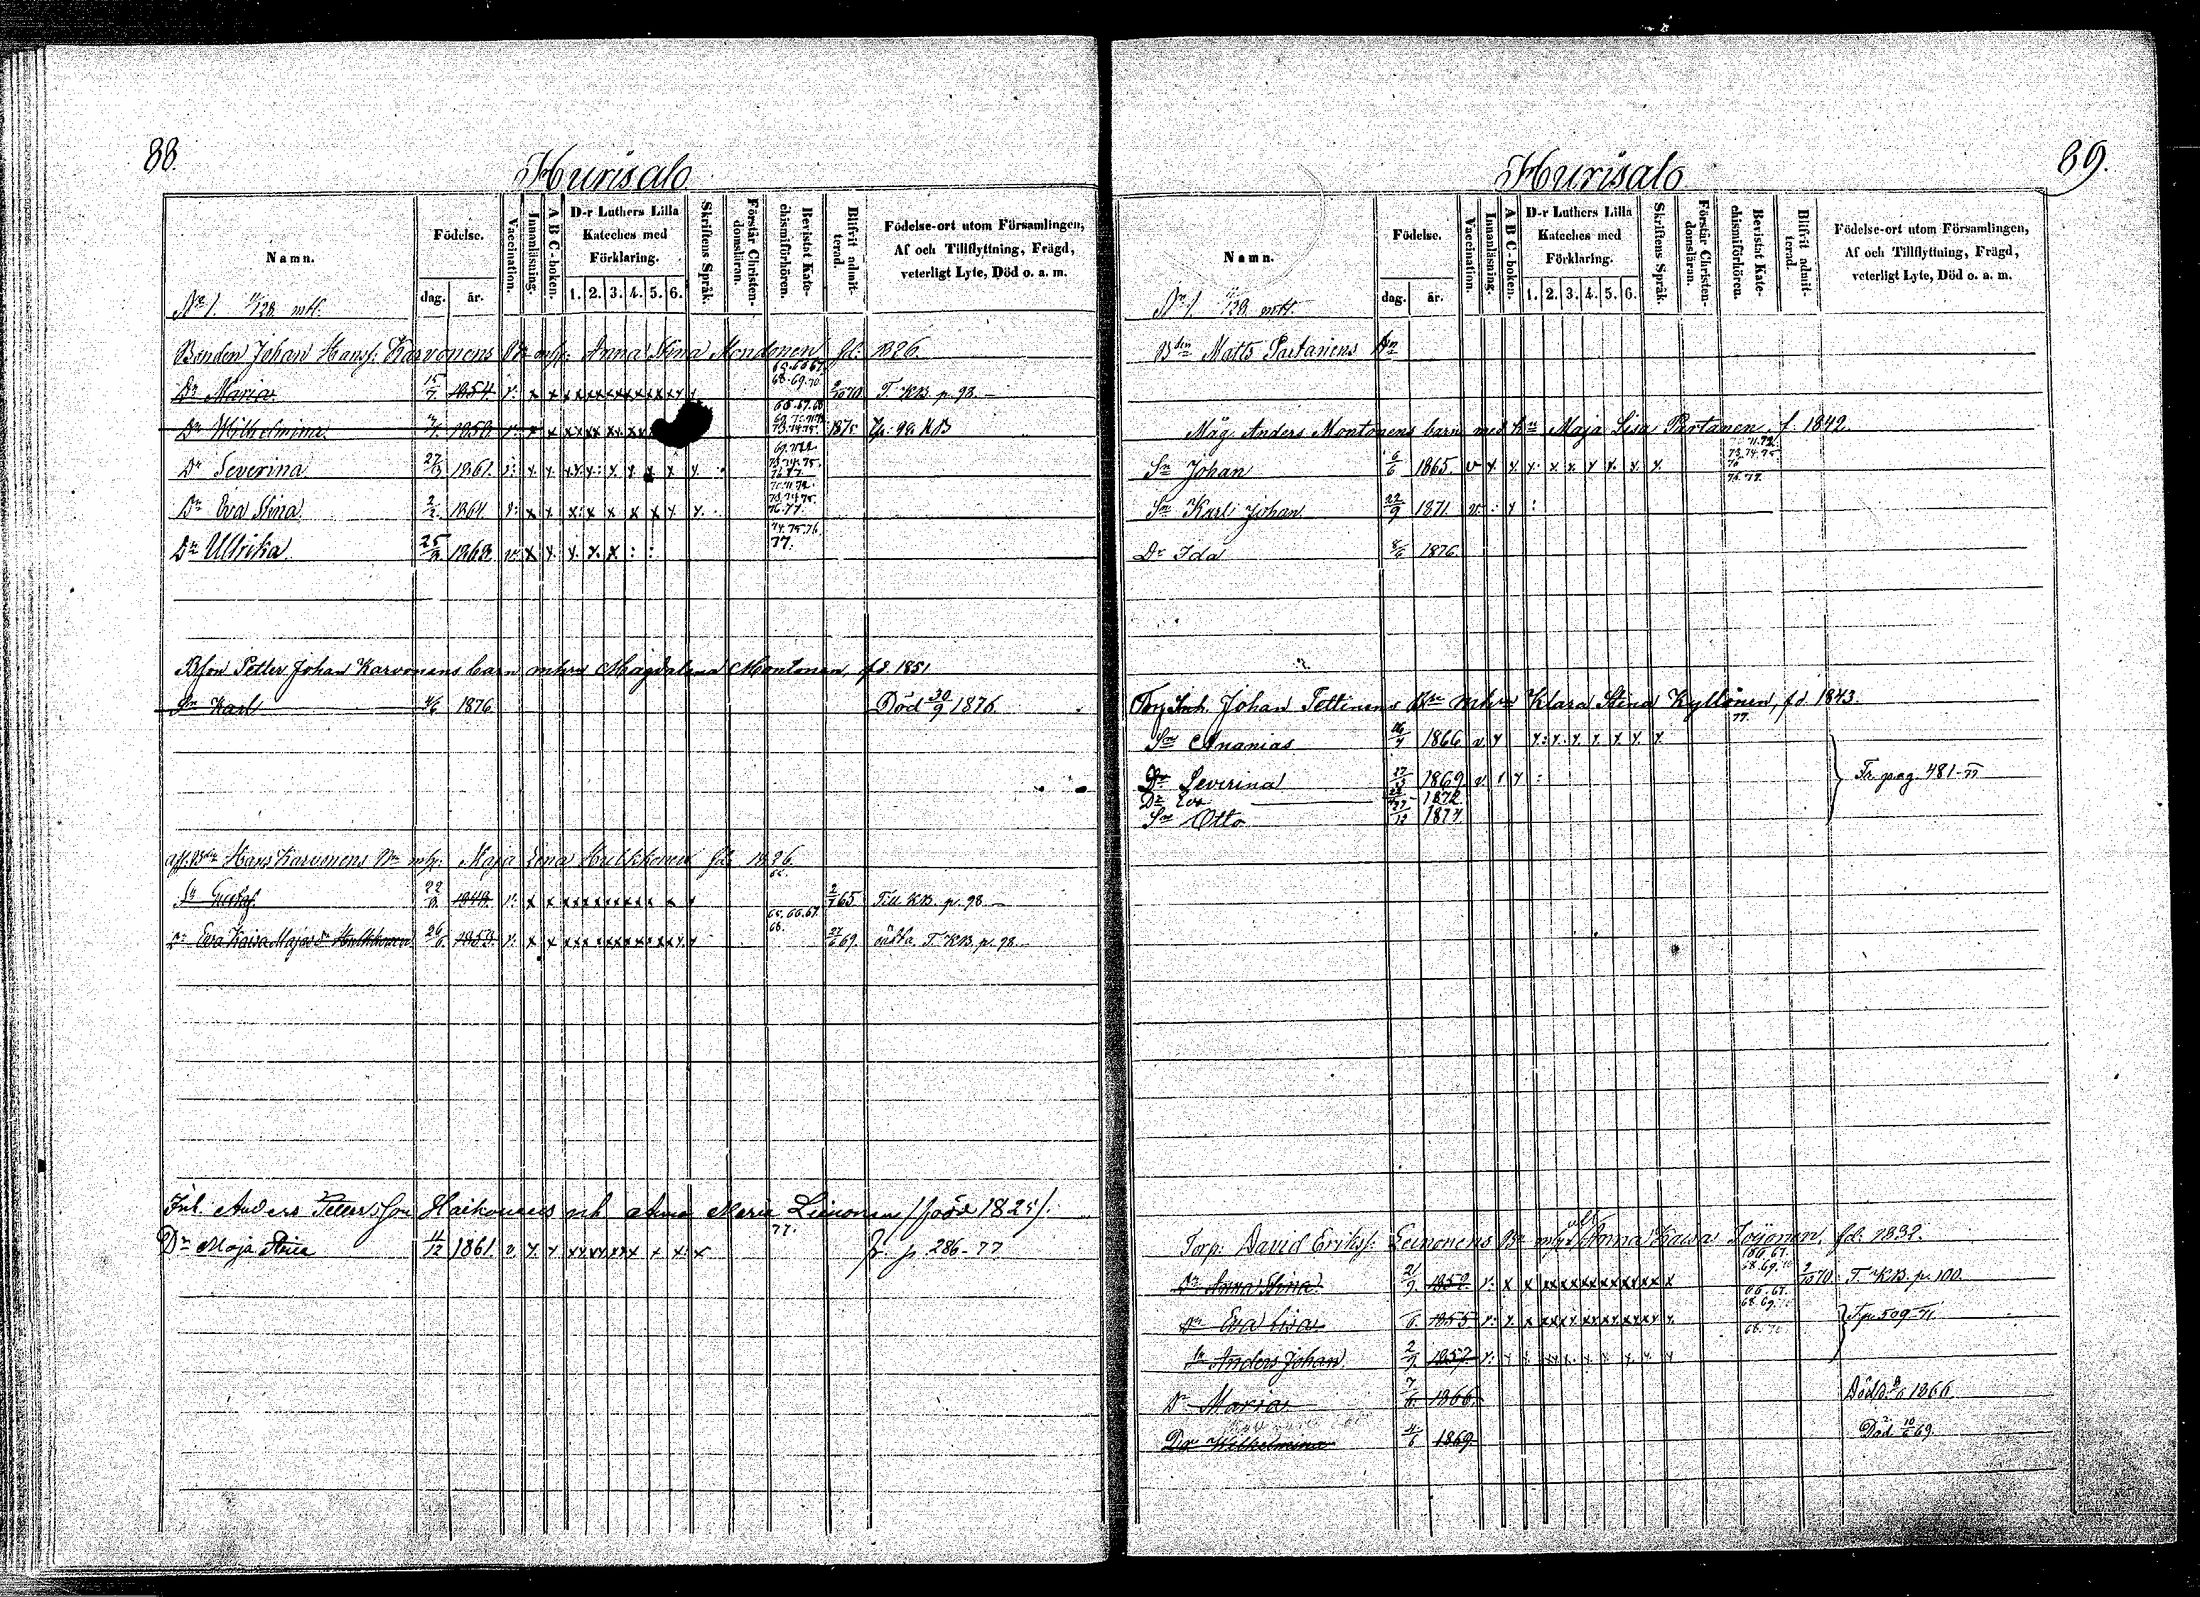 88.
Hurisalo
Namn.
Födelse.
dag.
år.
Vaccination.
Innanläsning.
A B C-boken.
D-r Luthers Lilla
Kateches med
Förklaring.
1. 2. 3. 4. 5. 6.
Skriftens Språk.
Förstår Christen-
domsläran.
Bevistat Kate-
chismiförhören.
Blifvit admit-
terad.
Födelse-ort utom Församlingen,
Af och Tillflyttning, Frägd,
veterligt Lyte, Död o. a. m.
N:o 1. mtl.
Bonden Johan Hansf: Karvonens Bn mhu: Anna Stina Montonen fd: 1826.
65.66.67.
Dr Maria 15/7 1854 v: x x x x x x x x x x x x 68.69.70 2/10 70 T. KB. p. 98.
Dr Wilhelmina 1858 v: x x 73.74.75. 1875
69.71.72.
Dr Severina 27/3 1861. v: x x 73.74.75. 76.77.
70.71.72.
Dr Eva Stina 2/2 1864. v: x x x: x x x x x x. 73.74.75. 76.77.
74.75.76
Dr Ullrika 25/3 1868. v: x x x. x. x : : 77.
Bfon Petter Johan Karvonens barn mhru Magdalena Montonen, fd. 1851
Sn Karl 4/6 1876 Död 30/9 1876.
Hans Karvonens Bn mhu: Maja Lena Hulkkonen fd. 1826.
Sn Gustaf. 22/8 1848. v: x x x x x x x x x x x x 2/7 65 Till KB. p. 98
65.66.67.
Dr Eva Kaisa Majasdr Hulkkonen 26/6 1853 v: x x x x x x x x x x x x x x 68. 27/6 69. T. KB. p. 98.
Inh. Anders Petterssfon Haikonens och Anna Maria Leinonens /född 1825/.
Dr Maja Stina 11/12 1861. v. x. x x x x x x x x x x 77. fr. p. 286-77
89.
Hurisalo
Namn.
Födelse.
dag.
år.
Vaccination.
Innanläsning.
A B C-boken.
D-r Luthers Lilla
Kateches med
Förklaring.
1. 2. 3. 4. 5. 6.
Skriftens Språk.
Förstår Christen-
domsläran.
Bevistat Kate-
chismiförhören.
Blifvit admit-
terad.
Födelse-ort utom Församlingen,
Af och Tillflyttning, Frägd,
veterligt Lyte, Död o. a. m.
N:o 1. mtl.
Bden Matts Partanens Bn
Måg. Anders Montonens barn med hu Maja Lisa Partanen, f. 1842.
Sn Johan 6/6 1865. v x. x. x. x. x. x x. x. x. 73.74.75. 76 76.77.
Sn Karl Johan 22/9 1871. v. : x :
Dr Ida 8/6 1876.
Torp.Inh. Johan Tettinens Bn mhru Klara Stina Kyllönen, fd. 1843.
77.
Sn Ananias 1866 v. x x: x. x. x. x. x. x.
Dr Severina 1869 v. x :
Fr. pag. 481-77
Dr Eva 1872.
Sn Otto 1877.
Torp: David Eriksf: Leinonens Bn mhu Anna Kaisa Töyonen, fd: 1832.
66.67.
Dr Anna Stina 21/9 1852. v: x x x x x x x x x x x x x 68.69.70 2/10 70. T. KB. p. 100.
66.67.
Dr Eva Lisa 1855 v: x. x x x x. x x x x x x x x. 68.69.70
T. p. 509-71.
Sn Anders Johan 2/9 1857. v: 68.70
Dr Maria 7/6 1866. Död 1866.
Dr Wilhelmina 4/6 1869. Död 10/6 69.